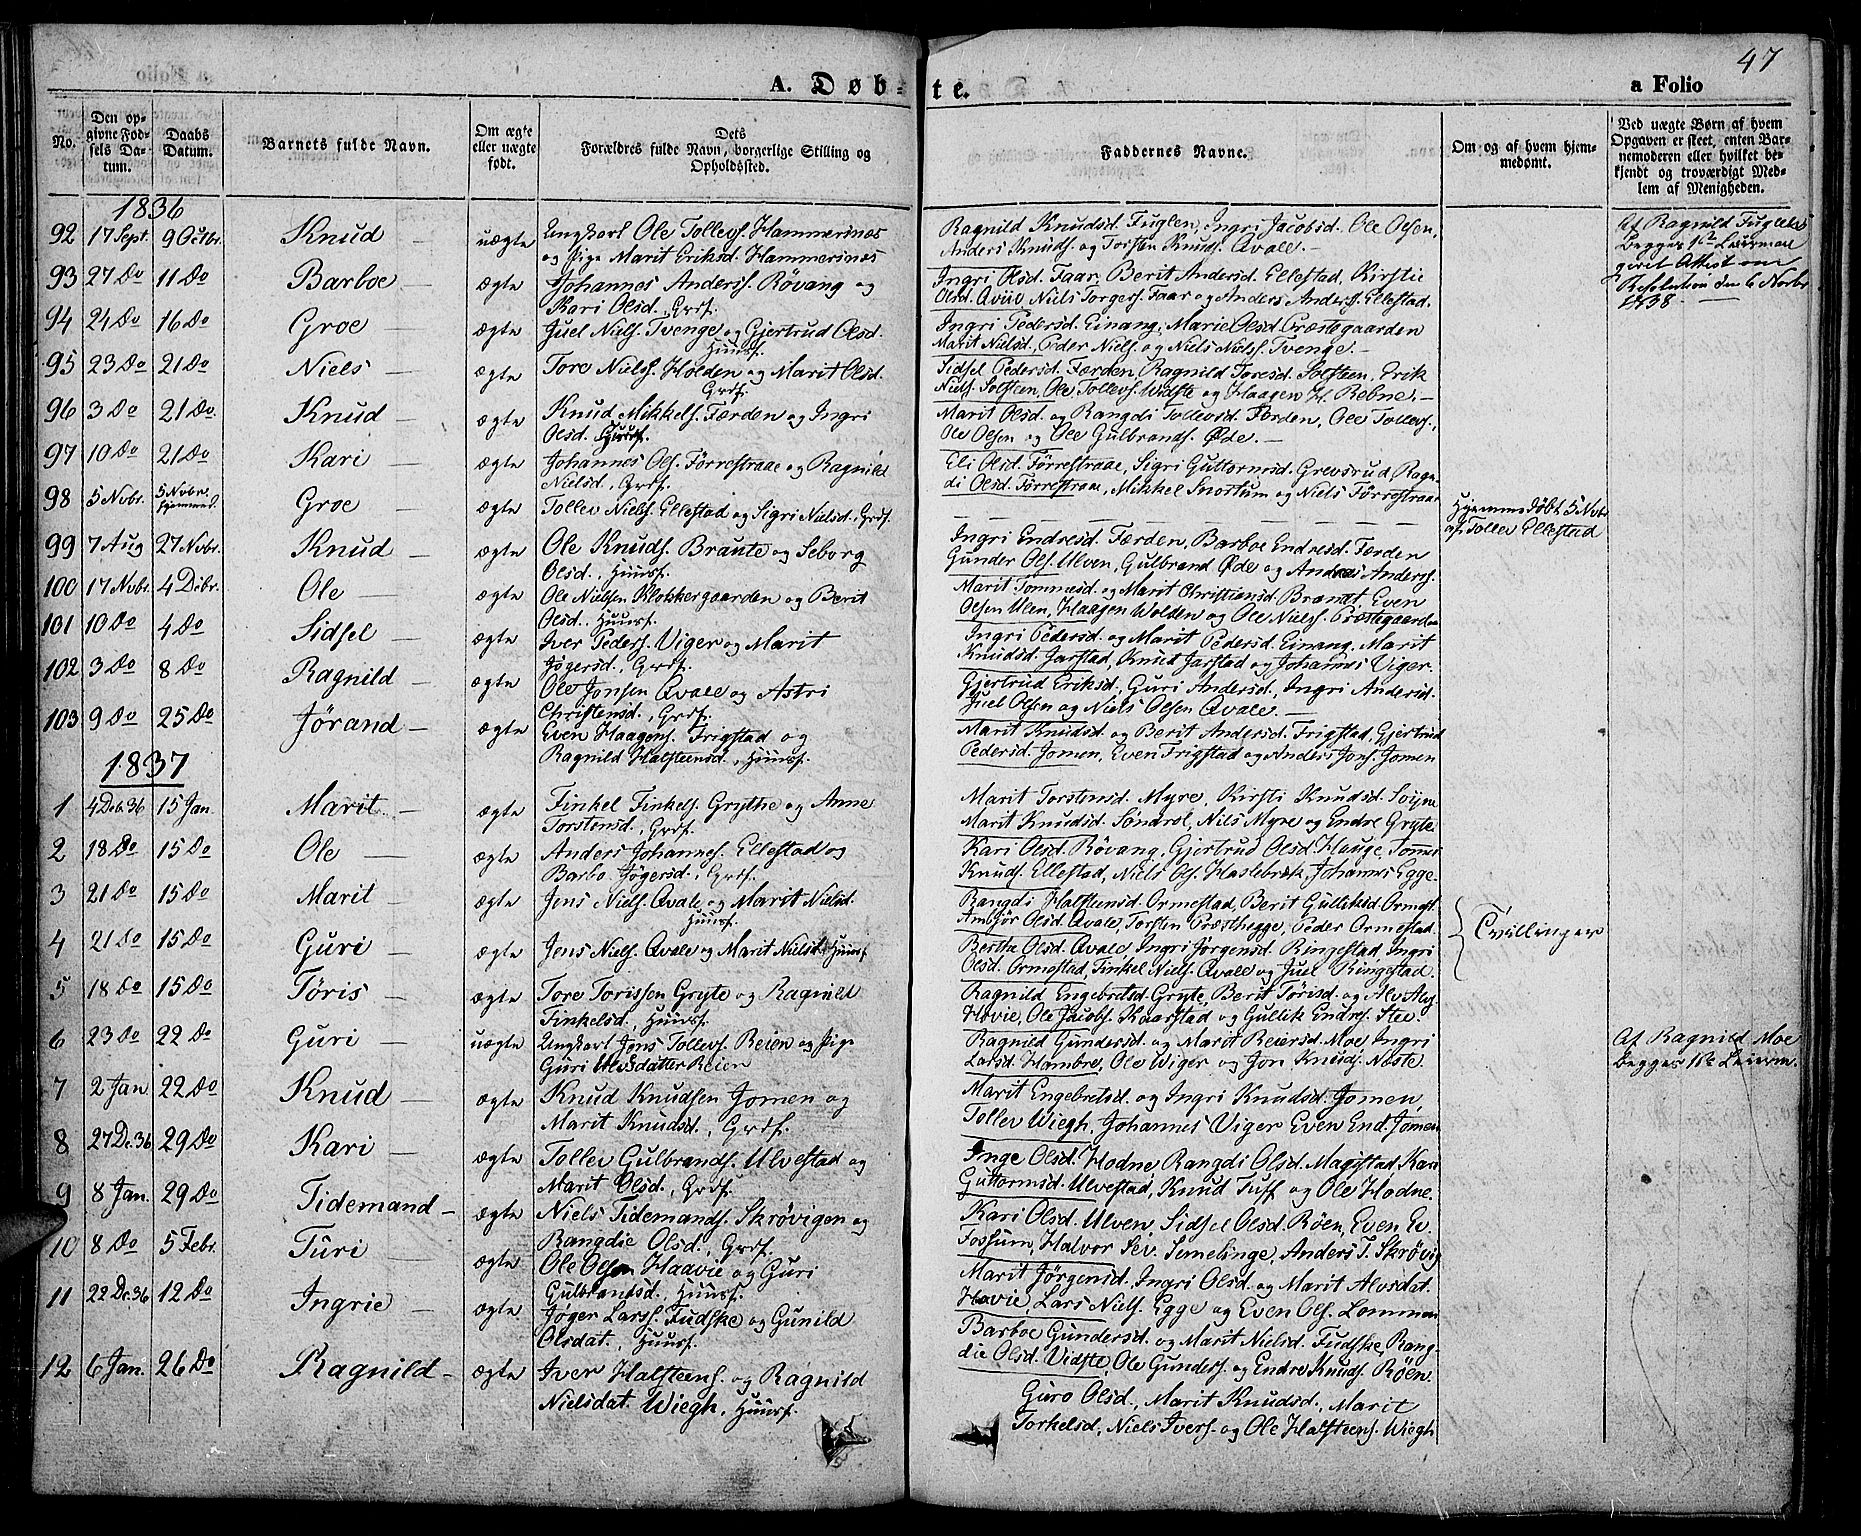 47
A. Døb-te.
a Folio
No.
Den op-
givne Fød-
sels Da-
tum.
Daabs
Datum.
Barnets fulde Navn.
Om ægte
eller uægte
født.
Dets
Forældres fulde Navn, borgerlige Stilling og
Opholdssted.
Faddernes Navne.
Om og af hvem hjem-
medømt.
Ved uægte Børn af hvem
Opgaven er skeet, enten Bar-
nemoderen eller hvilket be-
kjendt og troværdigt Med-
lem af Menigheden.
1836
92 17 Sept. 9 Octbr. Knud uægte Ungkarl Ole Tollevs. Hammerinæs
og Pige Marit Eriksd. Hammerinæs
Ragnild Knudsd. Fuglen, Ingri Jacobsd. Ole Olsen,
Anders Knuds. og Torsten Knuds. Qvale. —
Af Ragnild Fuglen
begges 1ste Leierm
Resolution den 6 Novbr
1838. —
93 27 Do 11 Do Barboe — ægte Johannes Anders. Røvang og
Kari Olsd., Grdf.
Ingri Olsd. Faar, Berit Andersd. Ellestad, Kirstie
Olsd. Qviie, Niels Torgers. Faar og Anders Anders. Ellestad.
94 24 Do 16 Do Groe — ægte Juel Niels. Tvenge og Gjertrud Olsd.
Huusf.
Ingri Pedersd. Einang, Marie Olsd. Præstegaarden
Marit Nielsd., Peder Niels. og Niels Niels. Tvenge. —
95 23 Do 21 Do Niels — ægte Tore Niels. Holden og Marit Olsd.
Grdf.
Sidsel Pedersd. Færden, Ragnild Toresd. Solsteen, Erik
Niels. Solsteen, Ole Tollevs. Widste og Haagen H. Rebne. —
96 3 Do 21 Do Knud — ægte Knud Mikkels. Færden og Ingri
Olsd. Huusf.
Marit Olsd. og Rangdi Tollevsd. Forden, Ole Tollevs.,
Ole Olsen og Ole Gulbrands. Øde. —
97 10 Do 21 Do Kari — ægte Johannes Ols. Førrestraae og Ragnild
Nielsd., Grdf.
Eli Olsd. Førrestraae, Sigri Guttormsd. Grevsrud, Ragn-
di Olsd. Førrestraae, Mikkel Snortum og Niels Førrestraae
98 5 Novbr. 5 Novbr.
hjemmed. Groe — ægte Tollev Niels. Ellestad og Sigri Nielsd., Grdf.
Hjemmedøbt 5 Novbr
af Tollev Ellestad
99 7 Aug 27 Novbr. Knud — ægte Ole Knuds. Braute og Seborg
Olsd., Huusf.
Ingri Endresd. Færden, Barboe Endresd. Færden
Gunder Ols. Ulven, Gulbrand Øde og Andreas Anders.
100 17 Novbr. 4 Debr. Ole — ægte Ole Nielsen Klokkergaarden og Berit
Olsd. Huusf.
Marit Tommesd. og Marit Christiansd. Brandt, Even
Olsen Ulen, Haagen Wolden og Ole Niels. Præstegaarden
101 10 Do 4 Do Sidsel — ægte Iver Peders. Viger og Marit
Jøgersd., Grdf.
Ingri Pedersd. og Marit Pedersd. Einang, Marit
Knudsd. Jarstad, Knud Jarstad og Johannes Viger.
102 3 Do 8 Do Ragnild — ægte Ole Jonsen Qvale og Astri
Christensd., Grdf.
Gjertrud Eriksd., Guri Andersd., Ingri Andersd.
Juel Olsen og Niels Olsen Qvale. —
103 9 Do 25 Do Jørand — ægte Even Haagens. Frigstad og
Ragnild Halsteensd., Huusf.
Marit Knudsd. og Berit Andersd. Frigstad, Gjertrud
Pedersd. Jomen, Even Frigstad og Anders Jons. Jomen
1837
1 4 Deb. 36 15 Jan. Marit — ægte Finkel Finkels. Grythe og Anne
Torstensd., Grdf.
Marit Torstensd. Myre, Kirsti Knudsd. Soyne
Marit Knudsd. Søndrol, Nils Myre og Endre Gryte.
2 18 Do 15 Do Ole — ægte Anders Johannes. Ellestad og
Barbo Jøgersd., Grdf.
Kari Olsd. Røvang, Gjertrud Olsd. Hauge, Tommes
Knuds. Ellestad, Niels Ols. Haslebræk, Johannes Egge.
3 21 Do 15 Do Marit — ægte Jens Niels. Qvale og Marit Nielsd.
Huusf.
Rangdi Halsteensd. Ormestad, Berit Gulliksd. Ormest.
Ambjør Olsd. Qvale, Torsten Præsthegge, Peder Ormestad.
Tvillinger
4 21 Do 15 Do Guri — ægte Jens Niels. Qvale og Marit Nielsd. Huusf
Berthe Olsd. Qvale, Ingri Jørgensd. Ringestad, Ingri
Olsd. Ormestad, Finkel Niels. Qvale og Juel Ringestad.
5 18 Do 15 Do Tøris — ægte Tore Torissen Gryte og Ragnild
Finkelsd., Huusf.
Ragnild Engebretsd. Gryte, Berit Törisd. og Alv Alvs.
Hovie, Ole Jacobs. Kaarstad og Gullik Endres. Stee.
6 23 Do 22 Do Guri — uægte Ungkarl Jøns Tollevs. Reien og Pige
Guri Ulvsdatter Reien
Ragnild Gundersd. og Marit Reiersd. Moe, Ingri
Larsd. Hambre, Ole Wiger og Jon Knuds. Næste.
Af Ragnild Moe
begges 1ste Leierm.
7 2 Jan 22 Do Knud — ægte Knud Knudsen Jomen og
Marit Knudsd., Grdf.
Marit Engebretsd. og Ingri Knudsd. Jomen,
Tollev Wiegh, Johannes Viger, Even End. Jomen
8 27 De. 36 29 Do Kari — ægte Tollev Gulbrands. Ulvestad og
Marit Olsd., Grdf.
Inge Olsd. Hodne, Rangdi Olsd. Magistad, Kari
Guttormsd. Ulvestad, Knud Tuff og Ole Hodne.
9 8 Jan. 29 Do Tidemand — ægte Niels Tidemands. Skrøvigen og
Rangdie Olsd., Grdf.
Kari Olsd. Ulven, Sidsel Olsd. Røen, Even Ev.
Fossum, Halvor Sev. Semelinge, Anders T. Skrøvig
10 8 Do 5 Febr. Turi — ægte Ole Olsen Haavie og Guri
Gulbrandsd., Huusf.
Marit Jörgensd. Ingri Olsd. og Marit Alvsdat.
Hovie, Lars Niels. Egge og Even Ols. Lommen
11 22 De. 36 12 Do Ingrie — ægte Jøger Lars. Fudske og Gunild
Olsdat., Huusf.
Barboe Gundersd. og Marit Nielsd. Fudske, Rang-
die Olsd. Vidste, Ole Gunders. og Endre Knuds. Røen.
12 6 Jan. 26 Do Ragnild — ægte Iver Halsteens. og Ragnild
Nielsdat. Wiegh, Huusf.
Guro Olsd., Marit Knudsd., Marit
Torkelsd., Niels Ivers. og Ole Halsteens. Wiegh